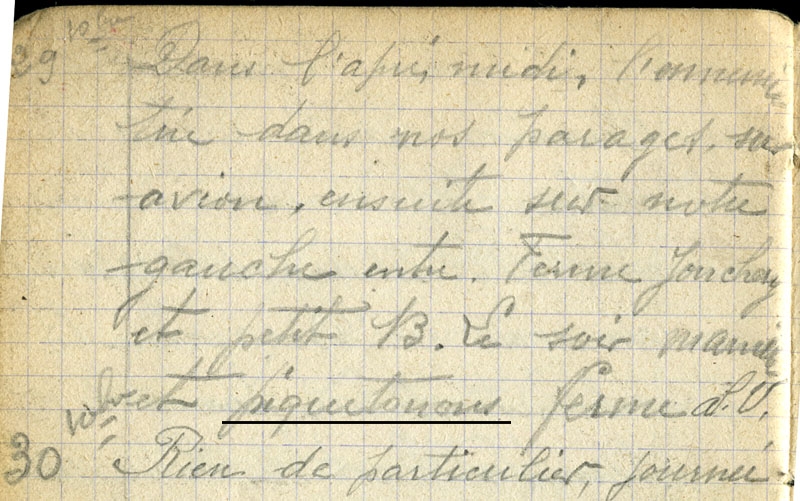 29 Dans l'après midi, l'ennemi
tire dans nos parages, sur
avion, ensuite sur notre
gauche entre. Ferme Jonchery
et petit B. Le soir
et piquetanous ferme d.V.
30 Rien de particulier, journée